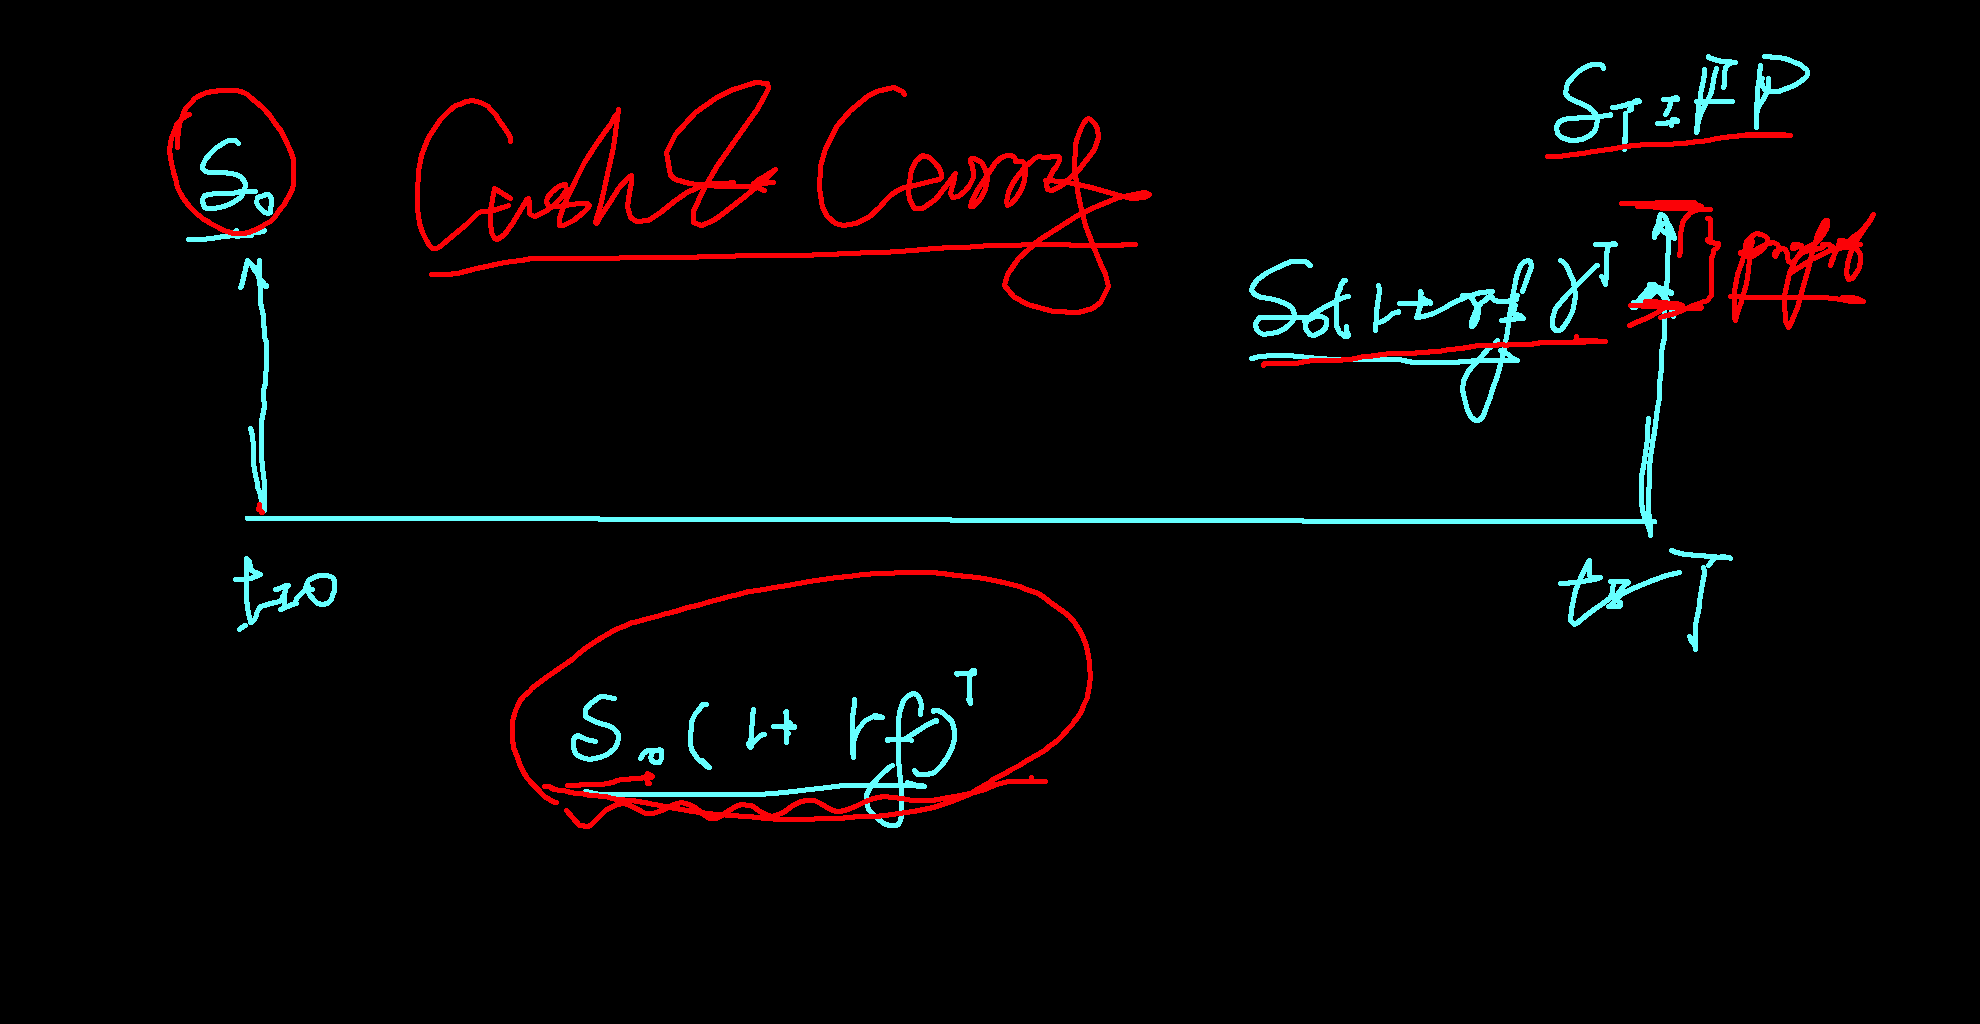 S₀ Cash & Carry S_T = FP
S₀(1+rf)^T } profit
t=0 t=T
S₀(1+rf)^T